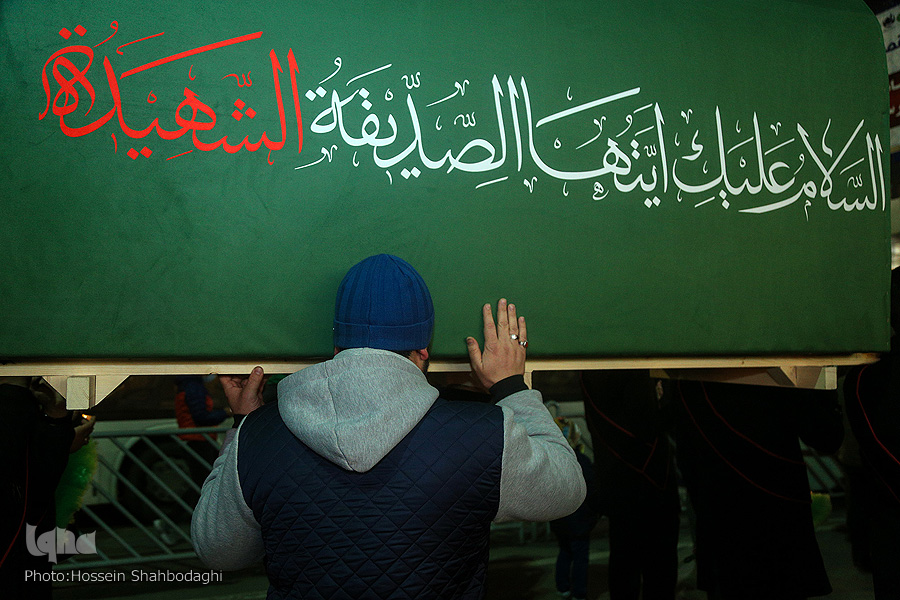 السَّلامُ عَلَيْكِ اَيَّتُهَا الصِّدّيقَةُ الشَّهيدَةُ
iqna
Photo:Hossein Shahbodaghi